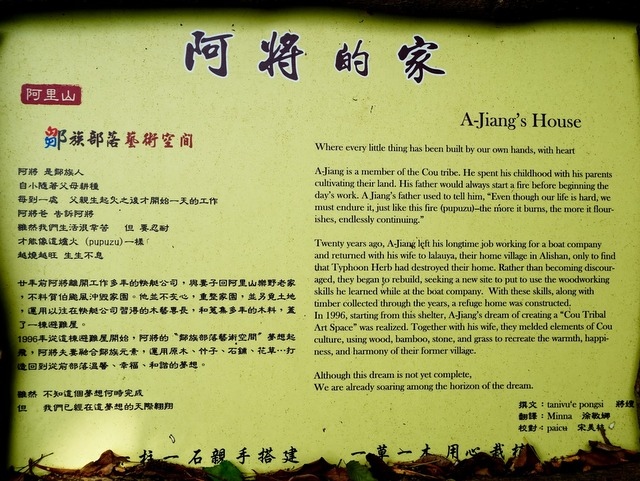 阿將的家
阿里山
鄒族部落藝術空間
阿將 是鄒族人
自小隨著父母耕種
每到一處 父親生起火之後才開始一天的工作
阿將爸 告訴阿將
雖然我們生活很辛苦 但 要忍耐
才能像這爐火 (pupuzu)一樣
越燒越旺 生生不息
廿年前阿將離開工作多年的快艇公司，與妻子回阿里山樂野老家
，不料賀伯颱風沖毀家園。他並不灰心，重整家園，並另覓土地
，運用以往在快艇公司習得的木藝專長，和蒐集多年的木料，蓋
了一棟避難屋。
1996年從這棟避難屋開始，阿將的“鄒族部落藝術空間”夢想起
飛，阿將夫妻融合鄒族元素，運用原木、竹子、石頭、花草…打
造回到從前部落溫馨、幸福、和諧的夢想。
雖然 不知這個夢想何時完成
但 我們已經在這夢想的天際翱翔
A-Jiang's House
Where every little thing has been built by our own hands, with heart
A-Jiang is a member of the Cou tribe. He spent his childhood with his parents
cultivating their land. His father would always start a fire before beginning the
day's work. A Jiang's father used to tell him, “Even though our life is hard, we
must endure it, just like this fire (pupuzu)–the more it burns, the more it flour-
ishes, endlessly continuing.”
Twenty years ago, A-Jiang left his longtime job working for a boat company
and returned with his wife to lalauya, their home village in Alishan, only to find
that Typhoon Herb had destroyed their home. Rather than becoming discour-
aged, they began to rebuild, seeking a new site to put to use the woodworking
skills he learned while at the boat company. With these skills, along with
timber collected through the years, a refuge home was constructed.
In 1996, starting from this shelter, A-Jiang's dream of creating a “Cou Tribal
Art Space” was realized. Together with his wife, they melded elements of Cou
culture, using wood, bamboo, stone, and grass to recreate the warmth, happi-
ness, and harmony of their former village.
Although this dream is not yet complete,
We are already soaring among the horizon of the dream.
撰文：tanivu'e pongsi 將嬪
翻譯：Minna 徐敏娜
校對：paicu 宋美
柱一石親手搭建 一草一木用心栽